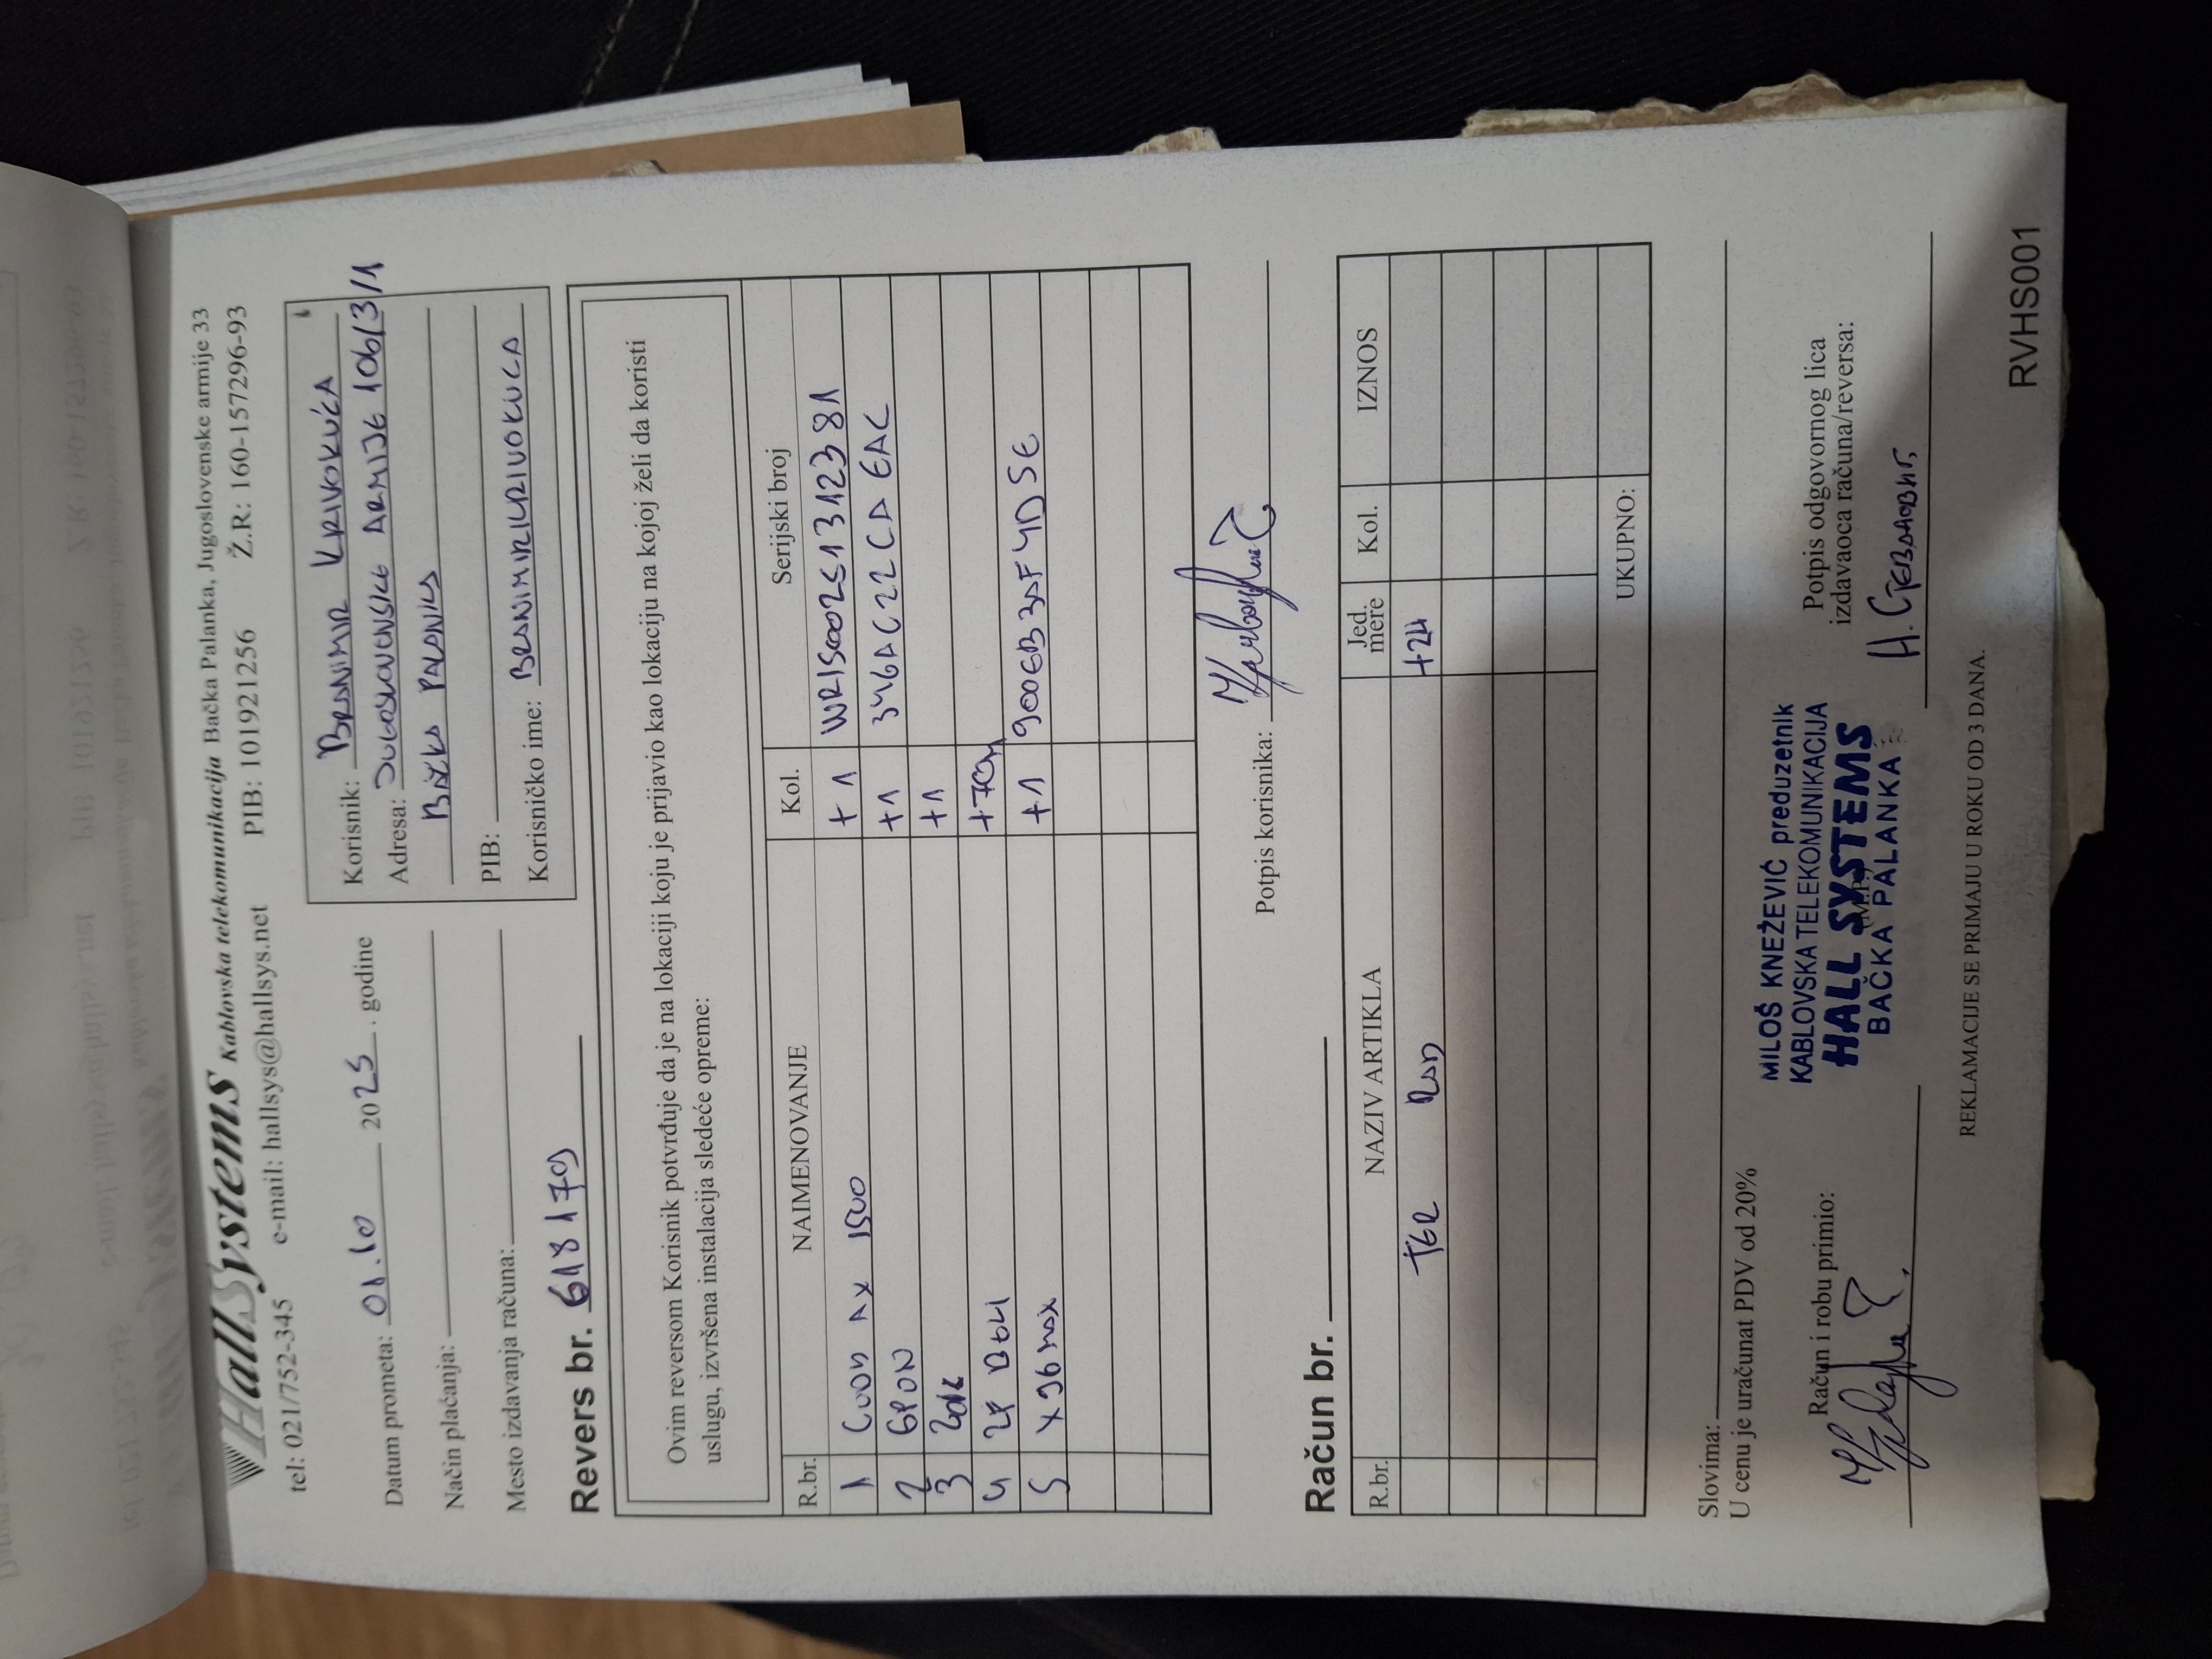 HallSystems Kablovska telekomunikacija Bačka Palanka, Jugoslovenske armije 33
tel: 021/752-345 e-mail: hallsys@hallsys.net PIB: 101921256 Ž.R: 160-157296-93
Datum prometa: 01.10 2025. godine
Način plaćanja:
Mesto izdavanja računa:
Korisnik: BRANIMIR KRIVOKUĆA
Adresa: JUGOSLOVENSKE ARMIJE 106/3/1
BAČKA PALANKA
PIB:
Korisničko ime: BRANIMIRKRIVOKUCA
Revers br. 618170
Ovim reversom Korisnik potvrđuje da je na lokaciji koju je prijavio kao lokaciju na kojoj želi da koristi
uslugu, izvršena instalacija sledeće opreme:
R.br. NAIMENOVANJE Kol. Serijski broj
1 AX 1500 +1
2 GPON +1 346AC22CDEAC
3 +1
4
5 X96 max +1
Potpis korisnika:
Račun br.
R.br. NAZIV ARTIKLA Jed. mere Kol. IZNOS
TER RAD +2H
UKUPNO:
Slovima:
U cenu je uračunat PDV od 20%
Račun i robu primio:
MILOŠ KNEŽEVIĆ preduzetnik
KABLOVSKA TELEKOMUNIKACIJA
HALL SYSTEMS
(M.P.)
BAČKA PALANKA
Potpis odgovornog lica
izdavaoca računa/reversa:
REKLAMACIJE SE PRIMAJU U ROKU OD 3 DANA.
RVHS001